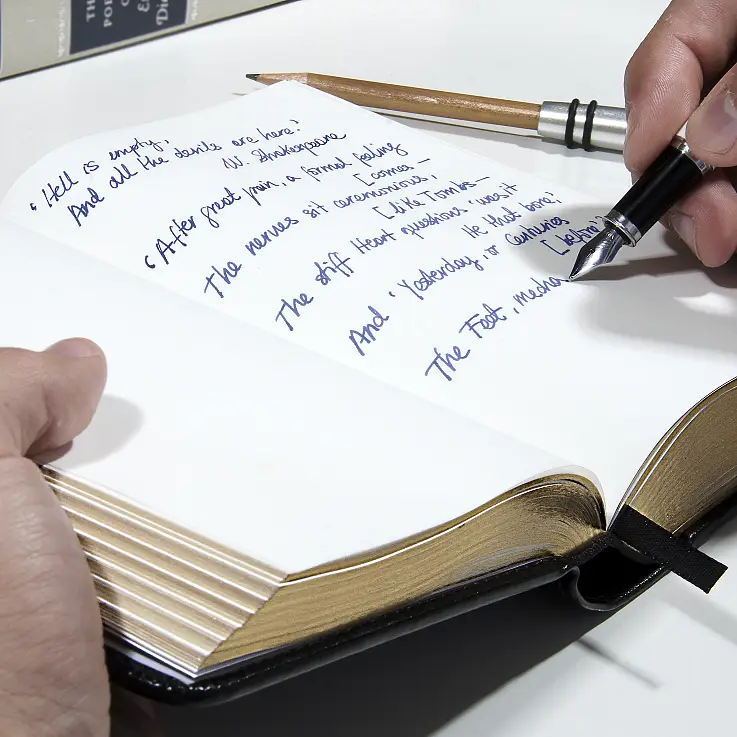 THE
PO
O
E
Di
'Hell is empty,
And all the devils are here.'
W. Shakespeare
'After great pain, a formal feeling
[comes –
The nerves sit ceremonious,
[like Tombs –
The stiff Heart questions 'was it
He that bore,'
And 'Yesterday, or Centuries
[before'?
The Feet, mecha